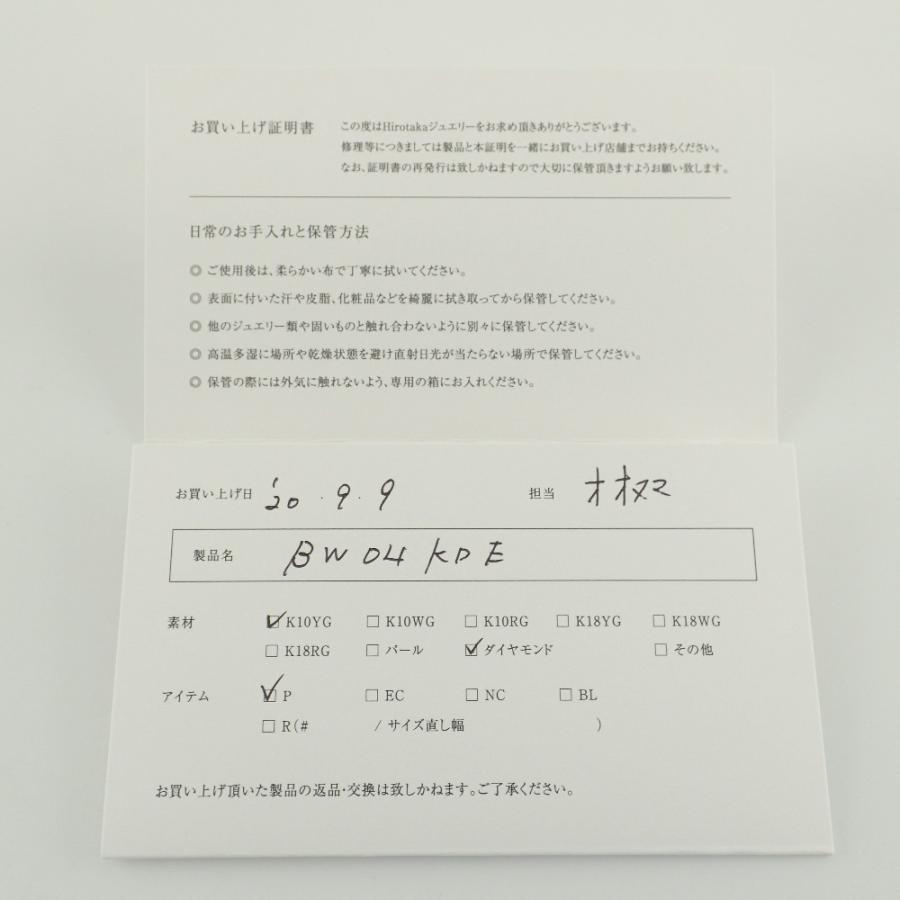 お買い上げ証明書
この度はHirotakaジュエリーをお求め頂きありがとうございます。
修理等につきましては製品と本証明を一緒にお買い上げ店舗までお持ちください。
なお、証明書の再発行は致しかねますので大切に保管頂きますようお願い致します。
日常のお手入れと保管方法
◎ ご使用後は、柔らかい布で丁寧に拭いてください。
◎ 表面に付いた汗や皮脂、化粧品などを綺麗に拭き取ってから保管してください。
◎ 他のジュエリー類や固いものと触れ合わないように別々に保管してください。
◎ 高温多湿に場所や乾燥状態を避け直射日光が当たらない場所で保管してください。
◎ 保管の際には外気に触れないよう、専用の箱にお入れください。
お買い上げ日 '20 . 9 . 9 担当
製品名 BW04KDE
素材 ☑ K10YG □ K10WG □ K10RG □ K18YG □ K18WG
□ K18RG □ パール ☑ ダイヤモンド □ その他
アイテム ☑ P □ EC □ NC □ BL
□ R(# / サイズ直し幅 )
お買い上げ頂いた製品の返品・交換は致しかねます。ご了承ください。